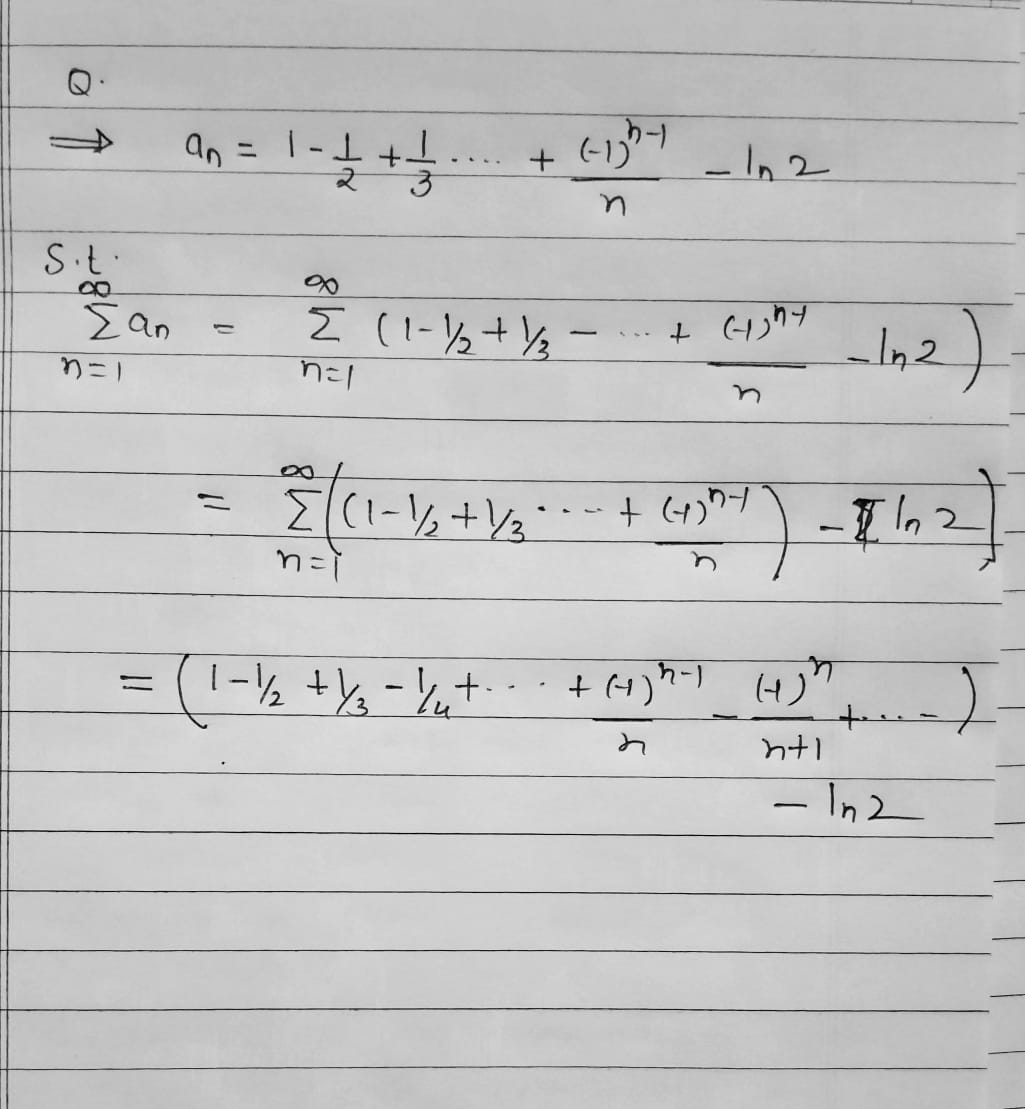 Q.
⇒ aₙ = 1 - 1/2 + 1/3 .... + (-1)ⁿ⁻¹/n - ln 2
S.t.
∞∑n=1 aₙ = ∞∑n=1 (1 - 1/2 + 1/3 - ... + (-1)ⁿ⁻¹/n - ln 2)
= ∞∑n=1 ((1 - 1/2 + 1/3 .... + (-1)ⁿ⁻¹/n) - ln 2)
= (1 - 1/2 + 1/3 - 1/4 + ... + (-1)ⁿ⁻¹/n - (-1)ⁿ/n+1 + ....)
- ln 2